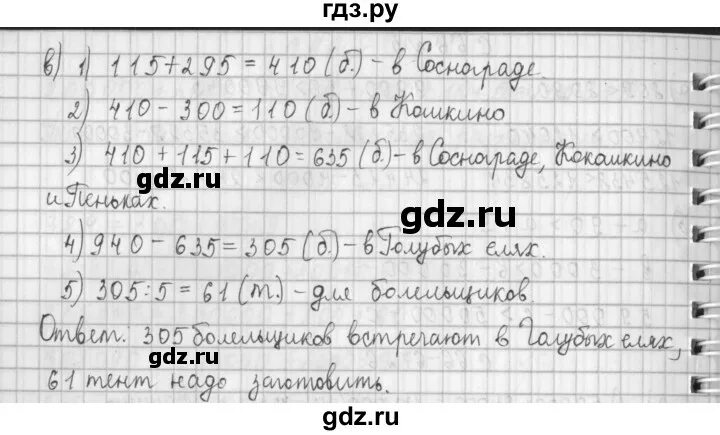 гдз.ру
в) 1) 115+295 = 410 (б.) - в Соснограде.
2) 410 - 300 = 110 (б.) - в Кошкино
3) 410 + 115 + 110 = 635 (б.) - в Соснограде, Кокошкино
gdz.ru
gdz.ru
и Пеньках.
4) 940 - 635 = 305 (б.) - в Голубых елях.
5) 305 : 5 = 61 (т.) - для болельщиков.
gdz.ru
Ответ: 305 болельщиков встречают в Голубых елях,
gdz.ru
61 тент надо заготовить.
gdz.ru